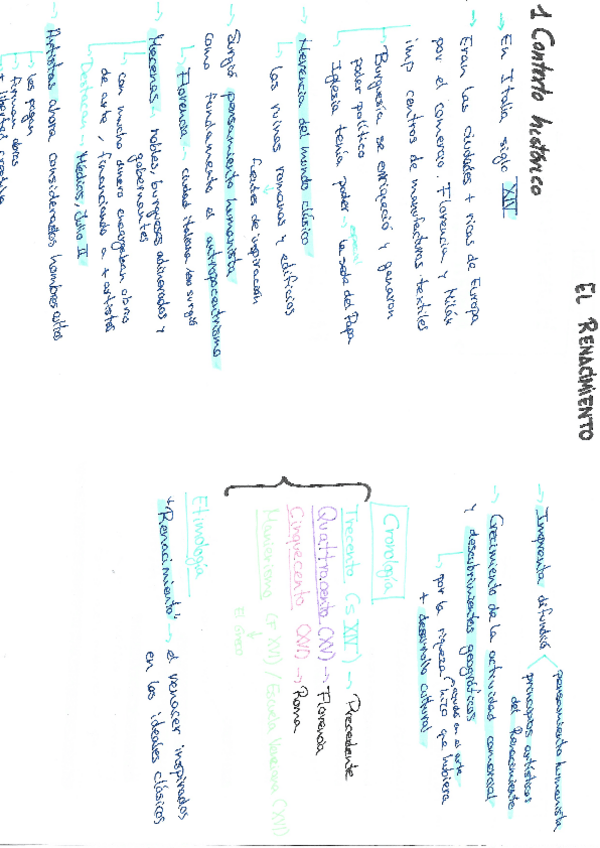 EL RENACIMIENTO
1 Contexto histórico
→ En Italia siglo XIV
→ Eran las ciudades + ricas de Europa
por el comercio. Florencia y Milán
imp centros de manufacturas textiles
↳ Burguesía se enriqueció y ganaron
poder político
↳ Iglesia tenía poder → la sede del Papa
especial
→ Herencia del mundo clásico
↳ las ruinas romanas y edificios
↓
fuentes de inspiración
→ Surgió pensamiento humanista
como fundamento el antropocentrismo
↳ Florencia → ciudad italiana
surgió
→ Mecenas → nobles, burgueses adinerados y
gobernantes
↳ con mucho dinero encargaban obras
de arte, financiando a + artistas
Destacan → Médicis, Julio II
→ Artistas ahora considerados hombres
↳ les pagan
↳ firman obras
↳ libertad creativa
→ Imprenta difundió < pensamiento humanista
principios artísticos
del Renacimiento
→ Crecimiento de la actividad comercial
y descubrimientos geográficos
↳ por la riqueza hizo que hubiera
+ desarrollo cultural
Cronología
Trecento (s XIV) → Precedente
Quattrocento (XV) → Florencia
Cinquecento (XVI) → Roma
Manierismo (F XVI) / Escuela Veneciana (XVI)
↓
El Greco
Etimología
"Renacimiento" → el renacer inspirados
en los ideales clásicos